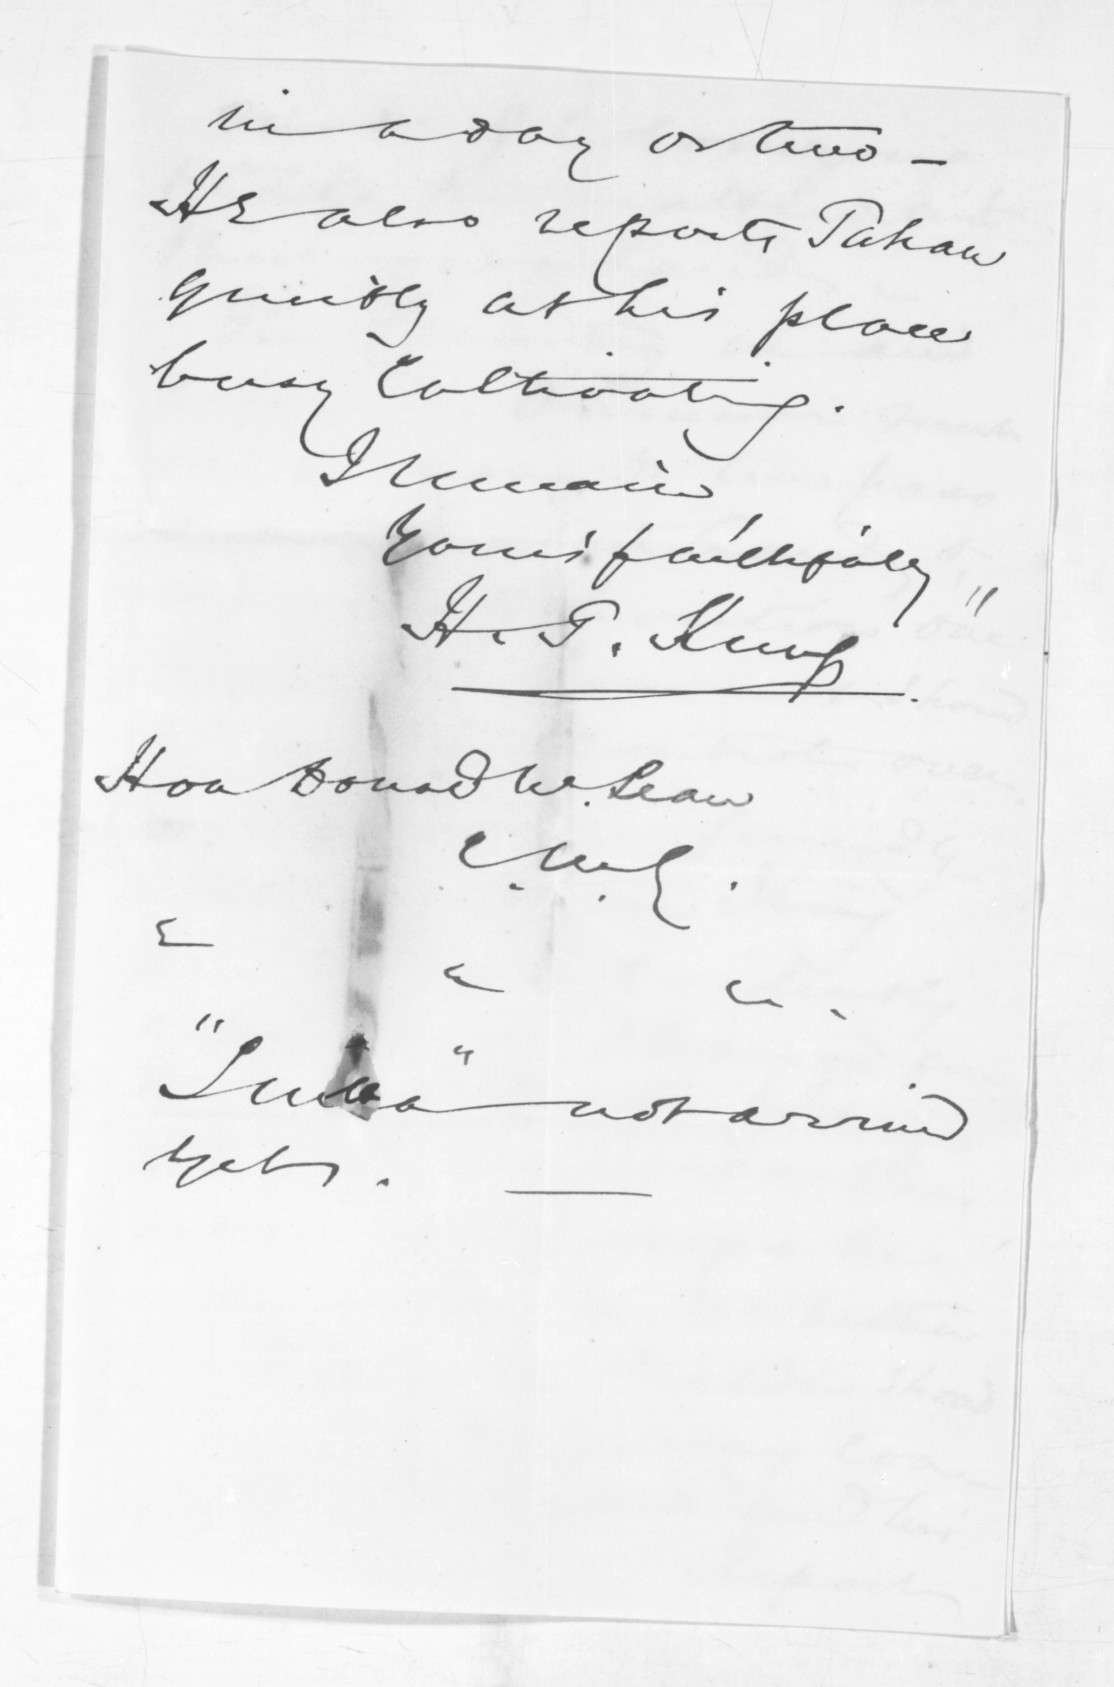 in a day or two —
He also reports Pahau
quietly at his place
busy Cultivating.
I remain
Yours faithfully "
H. T. Kemp
Hon Donald McLean
C. M. G.
" " "
"Luna" not arrived
yet.